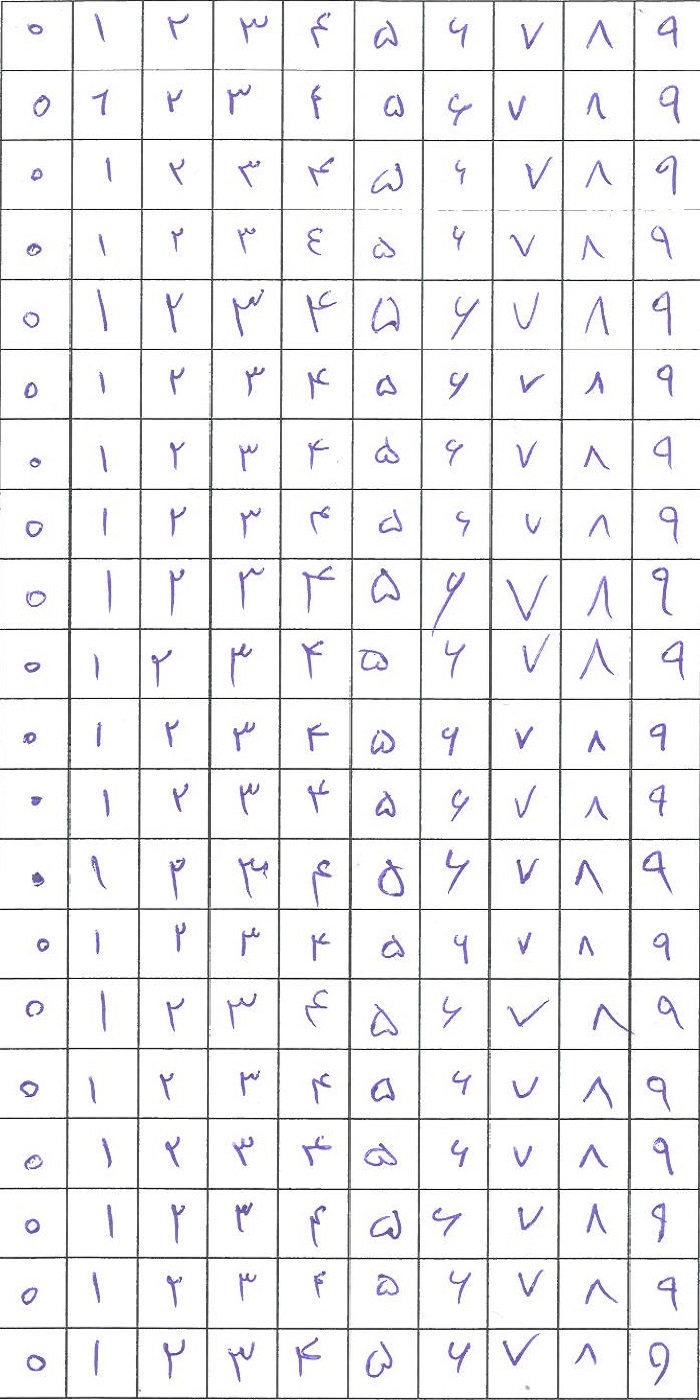 ۰ ۱ ۲ ۳ ۴ ۵ ۶ ۷ ۸ ۹
۰ ۱ ۲ ۳ ۴ ۵ ۶ ۷ ۸ ۹
۰ ۱ ۲ ۳ ۴ ۵ ۶ ۷ ۸ ۹
۰ ۱ ۲ ۳ ٤ ۵ ۶ ۷ ۸ ۹
۰ ۱ ۲ ۳ ۴ ۵ ۶ ۷ ۸ ۹
۰ ۱ ۲ ۳ ۴ ۵ ۶ ۷ ۸ ۹
۰ ۱ ۲ ۳ ۴ ۵ ۶ ۷ ۸ ۹
۰ ۱ ۲ ۳ ۴ ۵ ۶ ۷ ۸ ۹
۰ ۱ ۲ ۳ ۴ ۵ ۶ ۷ ۸ ۹
۰ ۱ ۲ ۳ ۴ ۵ ۶ ۷ ۸ ۹
۰ ۱ ۲ ۳ ۴ ۵ ۶ ۷ ۸ ۹
۰ ۱ ۲ ۳ ۴ ۵ ۶ ۷ ۸ ۹
۰ ۱ ۲ ۳ ۴ ۵ ۶ ۷ ۸ ۹
۰ ۱ ۲ ۳ ۴ ۵ ۶ ۷ ۸ ۹
۰ ۱ ۲ ۳ ۴ ۵ ۶ ۷ ۸ ۹
۰ ۱ ۲ ۳ ۴ ۵ ۶ ۷ ۸ ۹
۰ ۱ ۲ ۳ ۴ ۵ ۶ ۷ ۸ ۹
۰ ۱ ۲ ۳ ۴ ۵ ۶ ۷ ۸ ۹
۰ ۱ ۲ ۳ ۴ ۵ ۶ ۷ ۸ ۹
۰ ۱ ۲ ۳ ۴ ۵ ۶ ۷ ۸ ۹